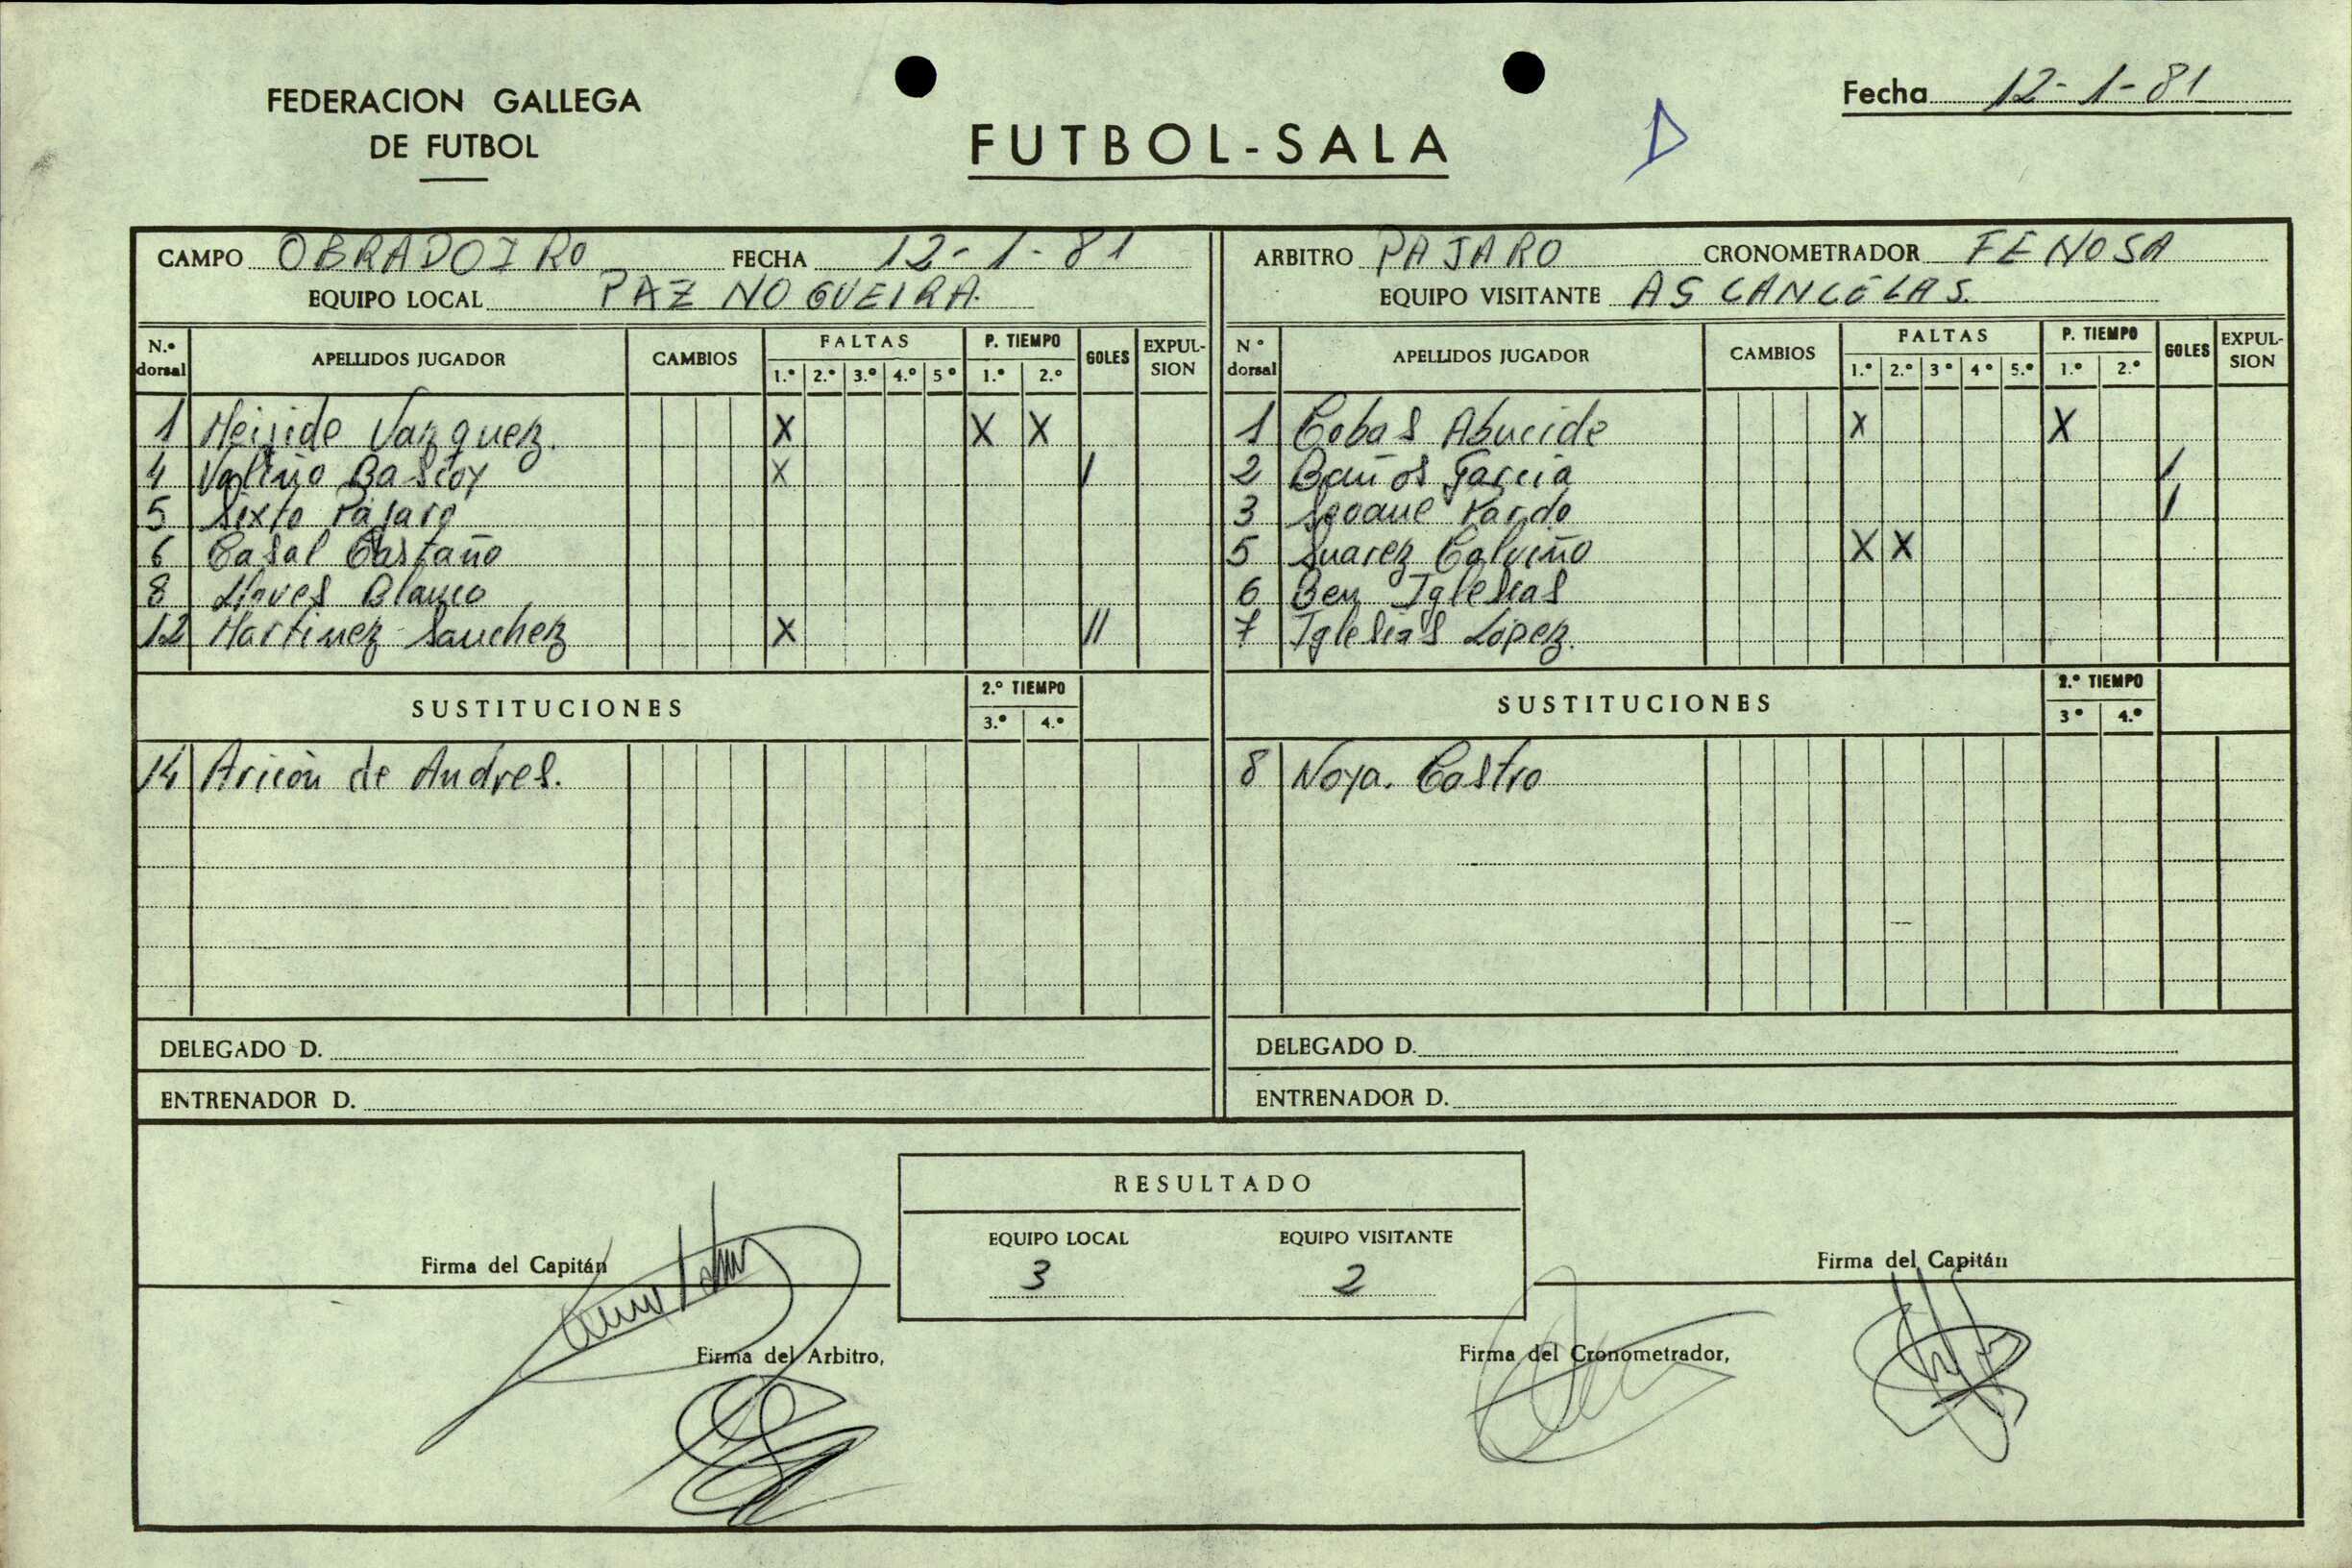 FEDERACION GALLEGA
DE FUTBOL
FUTBOL-SALA
Fecha 12-1-81
CAMPO OBRADOIRO FECHA 12-1-81
EQUIPO LOCAL PAZ NOGUEIRA.
N.º dorsal APELLIDOS JUGADOR CAMBIOS FALTAS 1.º 2.º 3.º 4.º 5º P. TIEMPO 1.º 2.º GOLES EXPULSION
1 Meijide Vazquez. X X X
4 Valiño Bascoy X I
5 Sixto Pájaro
6 Casal Castaño
8 Blanco
12 Martinez Sanchez X II
SUSTITUCIONES 2.º TIEMPO 3.º 4.º
14 Aricón de Andres.
DELEGADO D.
ENTRENADOR D.
ARBITRO PAJARO CRONOMETRADOR FENOSA
EQUIPO VISITANTE AS CANCELAS.
Nº dorsal APELLIDOS JUGADOR CAMBIOS FALTAS 1.º 2.º 3º 4º 5.º P. TIEMPO 1.º 2.º GOLES EXPULSION
1 Cobas Abucide X X
2 Baños Garcia I
3 Seoane Pardo I
5 Suarez Calviño X X
6 Ben Iglesias
7 Iglesias López.
SUSTITUCIONES 2.º TIEMPO 3º 4.º
8 Noya. Castro
DELEGADO D.
ENTRENADOR D.
RESULTADO
EQUIPO LOCAL EQUIPO VISITANTE
3 2
Firma del Capitán
Firma del Capitán
Firma del Arbitro,
Firma del Cronometrador,